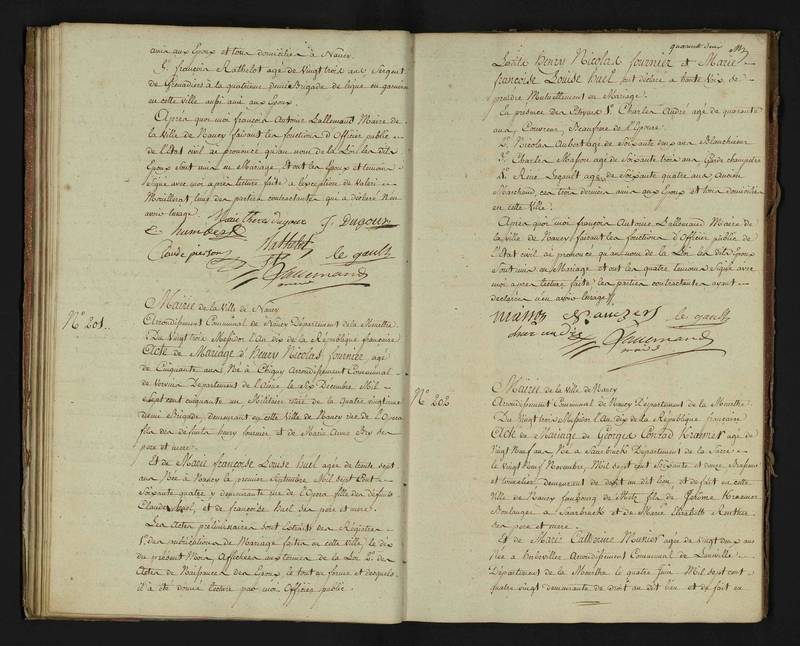 amis aux Epoux et tous domiciliés à Nancy.
3°. françois Rathelot agé de Vingt trois ans Sergent
de Grenadiers à la quatrieme demie Brigade de ligne en garnison
en cette ville aussi ami aux Epoux.
Après quoi moi françois Antoine Lallemand Maire de
la Ville de Nancy faisant les fonctions d'Officier public
de l'Etat civil ai prononcé qu'au nom de la Loi les dits
Epoux sont unis en Mariage, et ont les Epoux et temoins
Signé avec moi après lecture faite à l'exception de
l'une des parties contractantes qui a déclaré n'en
avoir l'usage.
J. Dugour
C. humbert
Rathelot
Claude pierson
le gault
Lallemand
N° 201.
Mairie de la Ville de Nancy
Arrondissement Communal de Nancy Département de la Meurthe.
Du Vingt trois Messidor l'An dix de la République françoise
Acte de Mariage d'Henry Nicolas fournier, agé
de Cinquante ans Né à Chigny Arrondissement Communal
de Vervin Département de l'Aisne le Six Décembre Mil
Sept cent cinquante un Militaire retiré de la Quatre vingtieme
demie Brigade, demeurant en cette Ville de Nancy rue de l'Opera
fils des défunts henry fournier et de Marie Anne Bry ses
pere et mere.
Et de Marie françoise Louise huel agée de trente sept
ans Née à Nancy le premier Septembre Mil sept Cent
Soixante quatre y demeurante rue de l'Opera fille des défunts
Claude huel, et de françoise huel ses pere et mere.
Les Actes préliminaires sont Extraits des Régistres
1°. des publications de Mariage faites en cette ville, le dix
du présent Mois Affichées aux termes de la Loi 2°. des
Actes de Naissances des Epoux le tout en forme et desquels
il a été donné lecture par moi Officier public.
quarante deux
Lesdits Henry Nicolas fournier et Marie
françoise Louise huel ont déclaré à haute voix se
prendre Mutuellement en Mariage.
En présence des Citoyens 1°. Charles André agé de quarante
ans, Couvreur, Beaufrere de l'Epouse.
2°. Nicolas Aubert agé de Soixante deux ans Blanchisseur
3°. Charles Masson agé de Soixante trois ans Garde champetre
4°. René Legault agé de Soixante quatre ans, ancien
Marchand, ces trois derniers amis aux Epoux et tous domiciliés
en cette Ville.
Après quoi moi françois Antoine Lallemand Maire de
la Ville de Nancy faisant les fonctions d'Officier public de
l'Etat civil ai prononcé qu'au nom de la Loi les dits Epoux
sont unis en Mariage et ont les quatre temoins Signé avec
moi après lecture faite les parties contractantes ayant
déclarées n'en avoir l'usage.
masson
le gault
Lallemand
N° 202
Mairie de la Ville de Nancy
Arrondissement Communal de Nancy Département de la Meurthe
Du Vingt trois Messidor l'An dix de la République françoise
Acte de Mariage de Georges Conrad Kraemer agé de
Vingt Neuf ans Né à Saarbruck Departement de la Sarre
le Vingt Neuf Novembre, Mil sept cent Soixante et douze,
et tonnelier demeurant de droit au dit lieu et de fait en cette
Ville de Nancy faubourg de Metz fils de Jerôme Kraemer
Boulanger à Saarbruck et de Marie Elizabeth
ses pere et mere.
Et de Marie Catherine Munier agée de Vingt deux ans
Née à Arrondissement Communal de Lunéville
Département de la Meurthe le quatre Juin Mil sept cent
quatre vingt demeurante de droit au dit lieu et de fait en